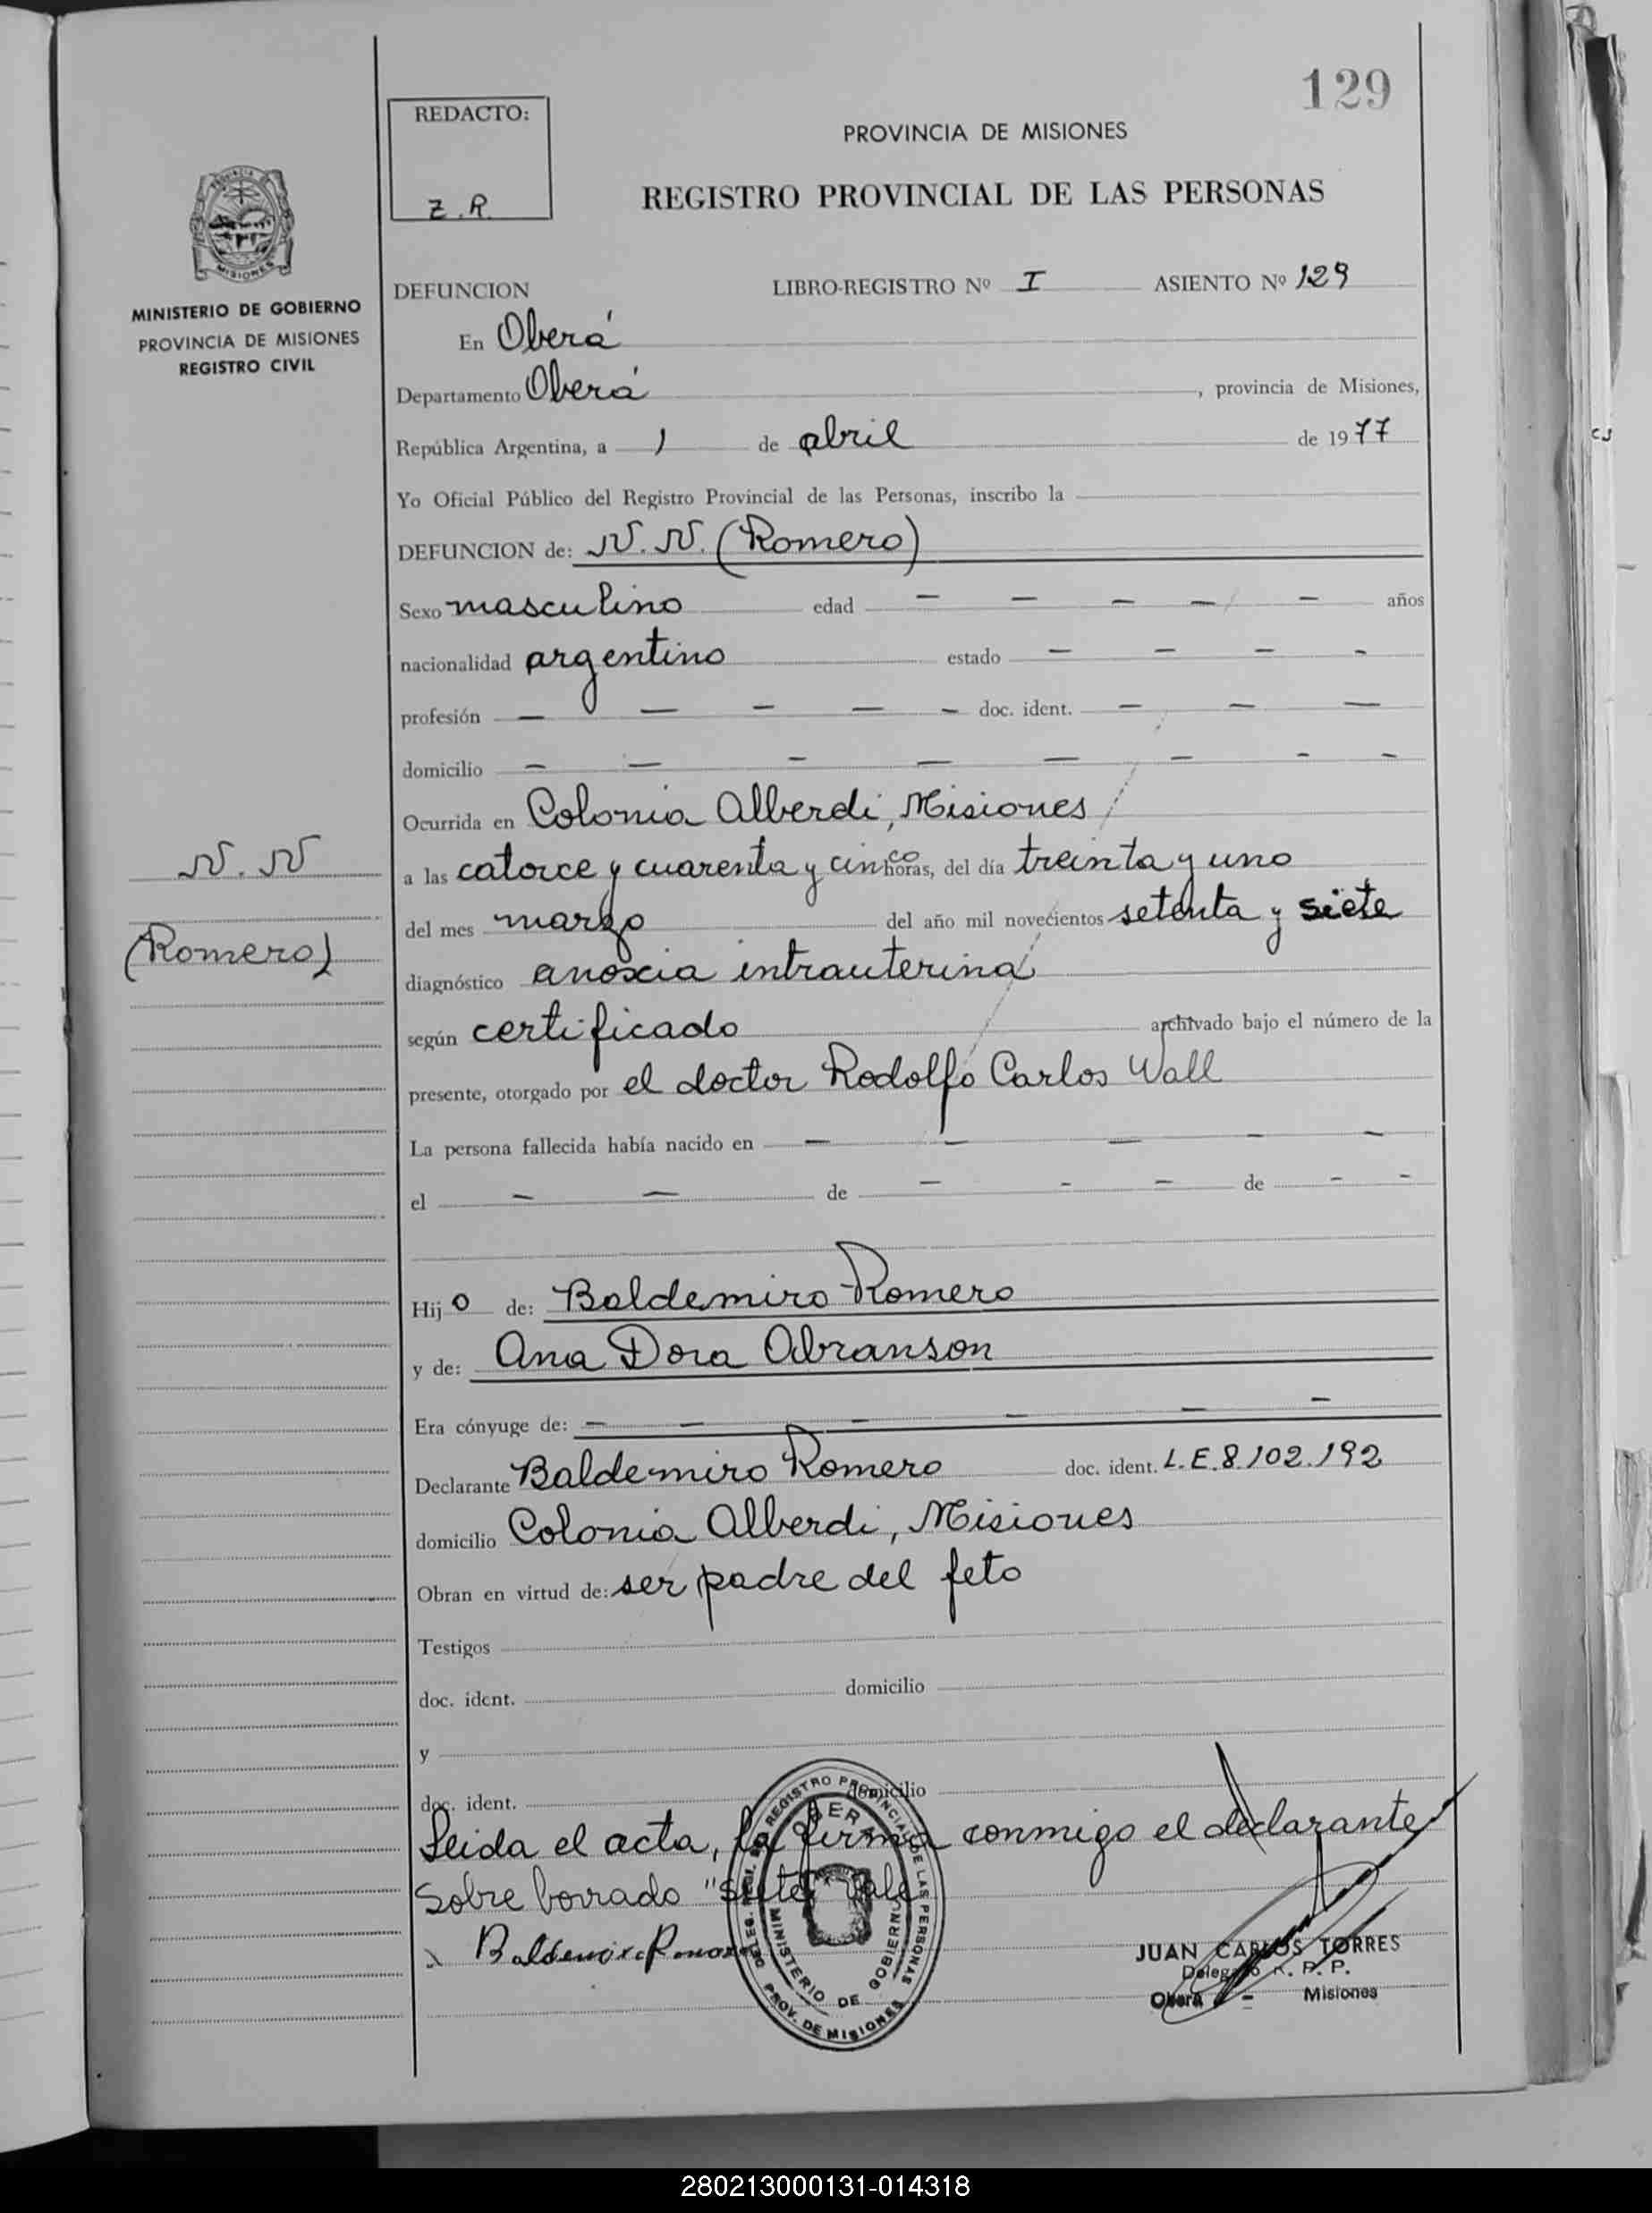 129
REDACTO:
Z.R.
PROVINCIA DE MISIONES
REGISTRO PROVINCIAL DE LAS PERSONAS
PROVINCIA
MISIONES
MINISTERIO DE GOBIERNO
PROVINCIA DE MISIONES
REGISTRO CIVIL
DEFUNCION LIBRO-REGISTRO Nº I ASIENTO Nº 129
En Oberá
Departamento Oberá, provincia de Misiones,
República Argentina, a 1 de abril de 1977
Yo Oficial Público del Registro Provincial de las Personas, inscribo la
DEFUNCION de: N.N. (Romero)
Sexo masculino edad — — — — — años
nacionalidad argentino estado — — — -
profesión — — — — — doc. ident. — — —
domicilio — — — — — — - -
Ocurrida en Colonia Alberdi, Misiones
N.N
(Romero)
a las catorce y cuarenta y cinco horas, del día treinta y uno
del mes marzo del año mil novecientos setenta y siete
diagnóstico anoxia intrauterina
según certificado archivado bajo el número de la
presente, otorgado por el doctor Rodolfo Carlos Wall
La persona fallecida había nacido en — — — - —
el — — de — - — de - -
Hijo de: Baldemiro Romero
y de: Ana Dora Abranson
Era cónyuge de: — — — — — —
Declarante Baldemiro Romero doc. ident. L.E.8.102.192
domicilio Colonia Alberdi, Misiones
Obran en virtud de: ser padre del feto
Testigos
doc. ident. domicilio
y
doc. ident. domicilio
Leida el acta, la firma conmigo el declarante
Sobre borrado "siete" Vale
Baldemiro Romero
REGISTRO PROVINCIAL DE LAS PERSONAS
OBERA
MINISTERIO DE GOBIERNO
PROV. DE MISIONES
JUAN CARLOS TORRES
Delegado R. P. P.
Oberá - Misiones
280213000131-014318